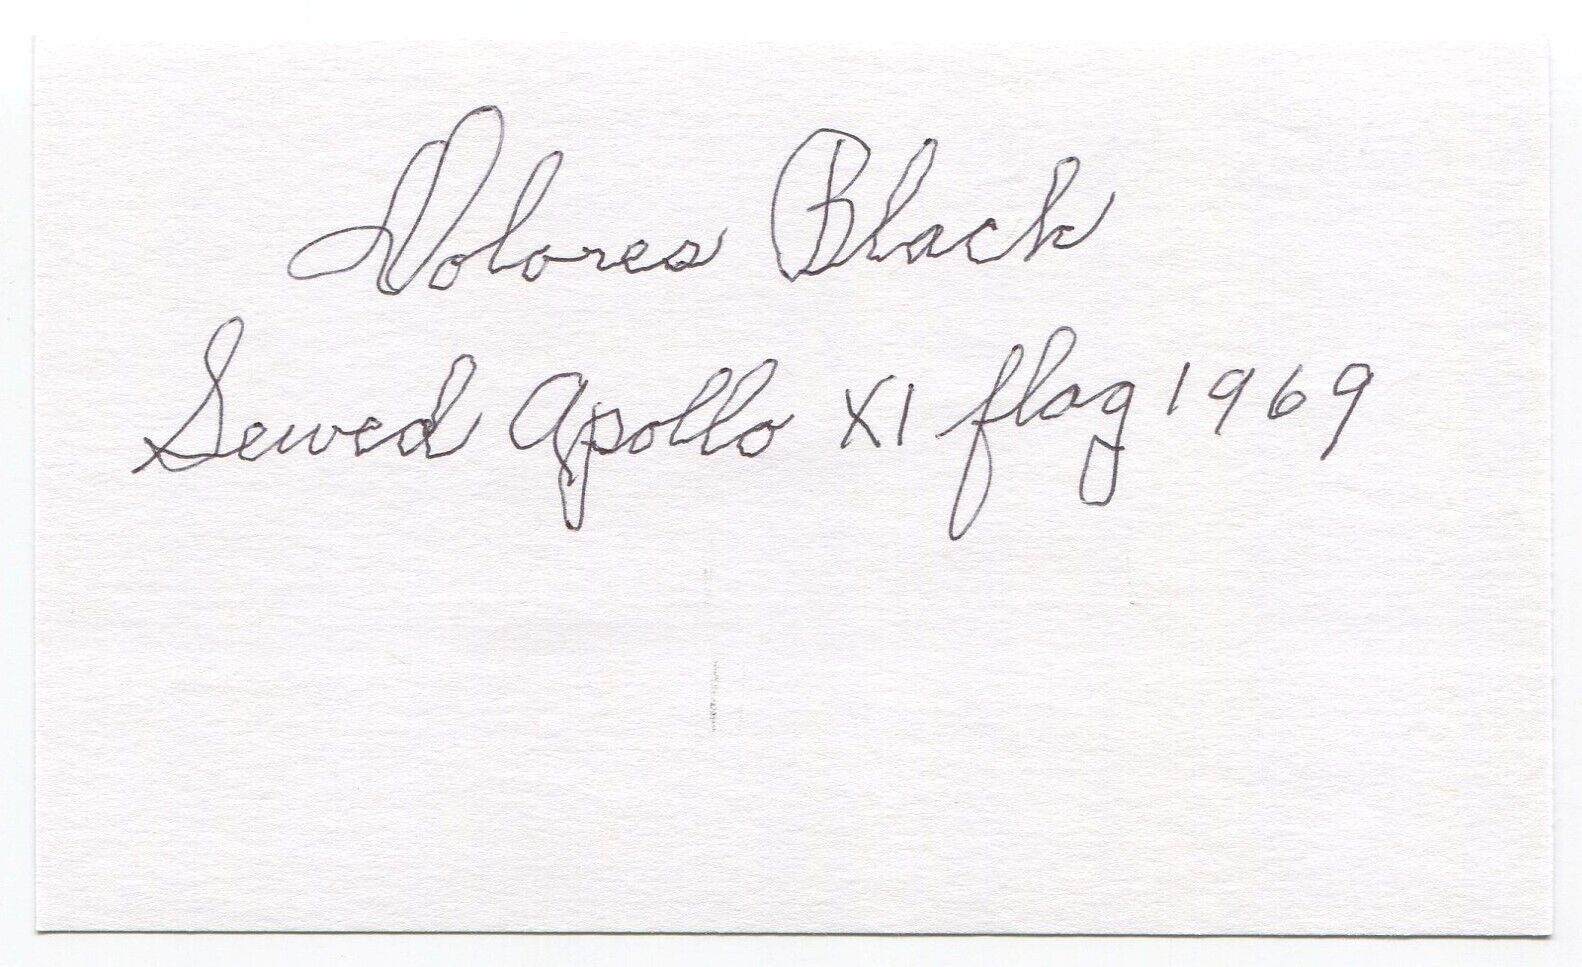 Dolores Black
Sewed Apollo XI flag 1969